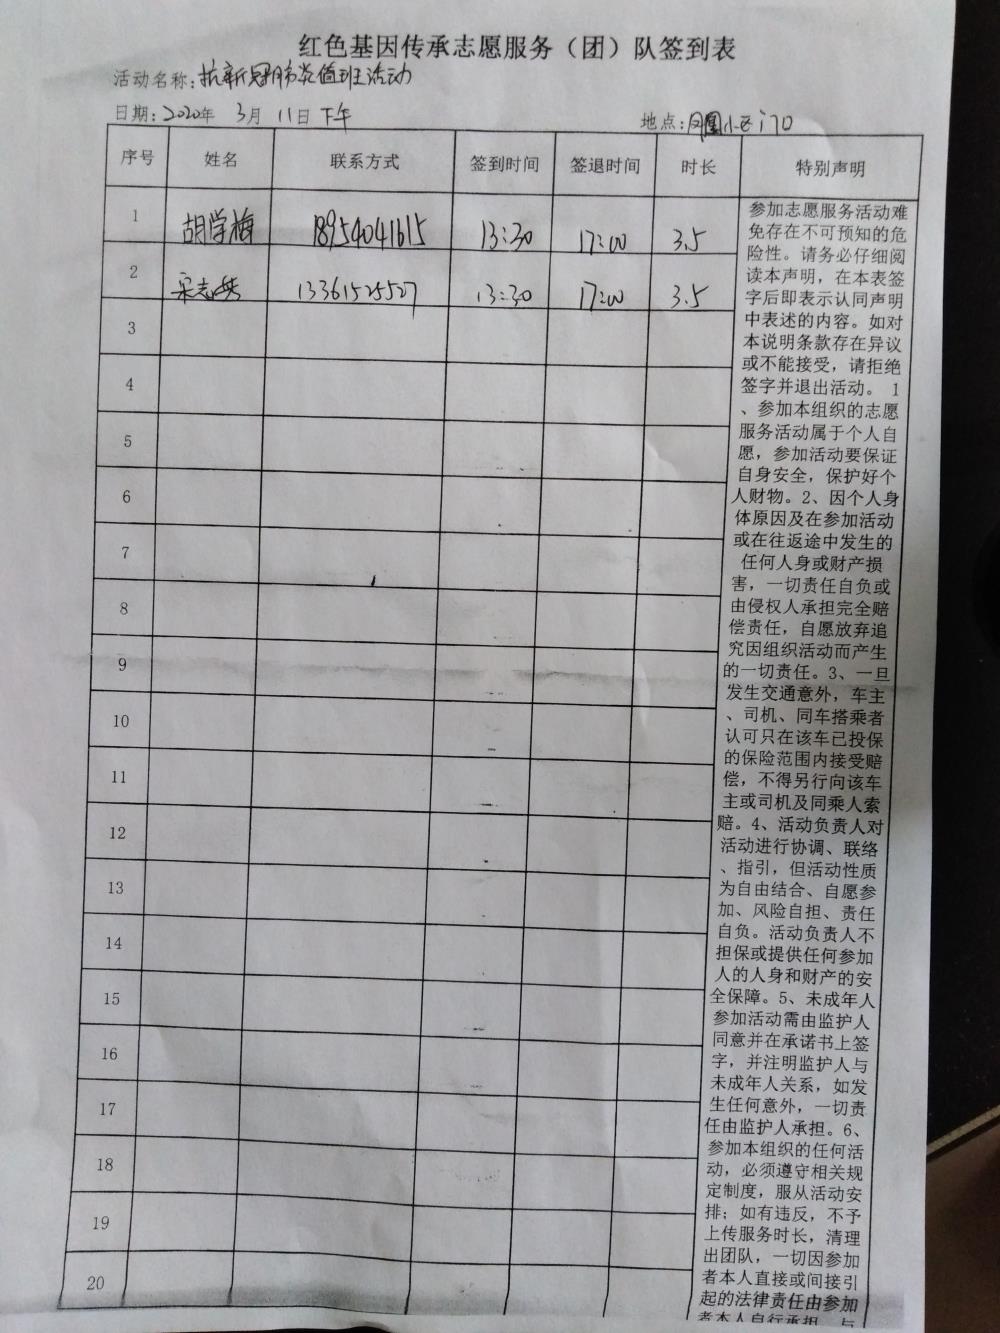 红色基因传承志愿服务（团）队签到表
活动名称：抗新冠肺炎值班活动
日期：2020年 3月 11日下午
地点：凤凰小区170
序号 姓名 联系方式 签到时间 签退时间 时长 特别声明
1 胡学梅 18954041615 13:30 17:00 3.5
2 宋志 13361525527 13:30 17:00 3.5
3
4
5
6
7
8
9
10
11
12
13
14
15
16
17
18
19
20
参加志愿服务活动难
免存在不可预知的危
险性。请务必仔细阅
读本声明，在本表签
字后即表示认同声明
中表述的内容。如对
本说明条款存在异议
或不能接受，请拒绝
签字并退出活动。 1
、参加本组织的志愿
服务活动属于个人自
愿，参加活动要保证
自身安全，保护好个
人财物。2、因个人身
体原因及在参加活动
或在往返途中发生的
任何人身或财产损
害，一切责任自负或
由侵权人承担完全赔
偿责任，自愿放弃追
究因组织活动而产生
的一切责任。3、一旦
发生交通意外，车主
、司机、同车搭乘者
认可只在该车已投保
的保险范围内接受赔
偿，不得另行向该车
主或司机及同乘人索
赔。4、活动负责人对
活动进行协调、联络
、指引，但活动性质
为自由结合、自愿参
加、风险自担、责任
自负。活动负责人不
担保或提供任何参加
人的人身和财产的安
全保障。5、未成年人
参加活动需由监护人
同意并在承诺书上签
字，并注明监护人与
未成年人关系，如发
生任何意外，一切责
任由监护人承担。6、
参加本组织的任何活
动，必须遵守相关规
定制度，服从活动安
排；如有违反，不予
上传服务时长，清理
出团队，一切因参加
者本人直接或间接引
起的法律责任由参加
者本人自行承担，与